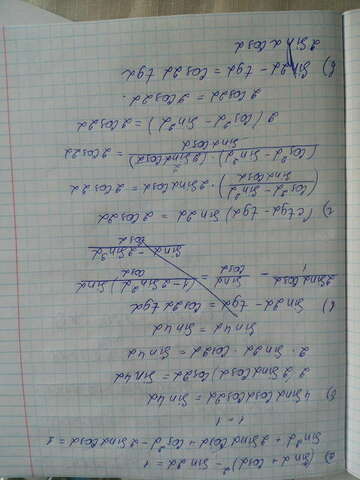 а) (sinα + cosα)² - sin2α = 1
sin²α + 2sinα cosα + cos²α - 2sinα cosα = 1
1 = 1
б) 4 sinα cosα cos2α = sin4α
2·2 sinα cosα) cos2α = sin4α
2 · sin2α · cos2α = sin4α
sin4α = sin4α
в) sin2α - tgα = cos2α tgα
2sinα cosα / 1 - sinα / cosα = (1-2sin²α) sinα / cosα
sinα - 2sin³α / cosα
г) (ctgα - tgα) sin2α = 2cos2α
(cos²α - sin²α / sinα cosα) · 2 sinα cosα = 2cos2α
(cos²α - sin²α) · (2 sinα cosα) / sinα cosα = 2cos2α
2(cos²α - sin²α) = 2cos2α
2cos2α = 2cos2α.
в) sin2α - tgα = cos2α tgα
2 sinα cosα